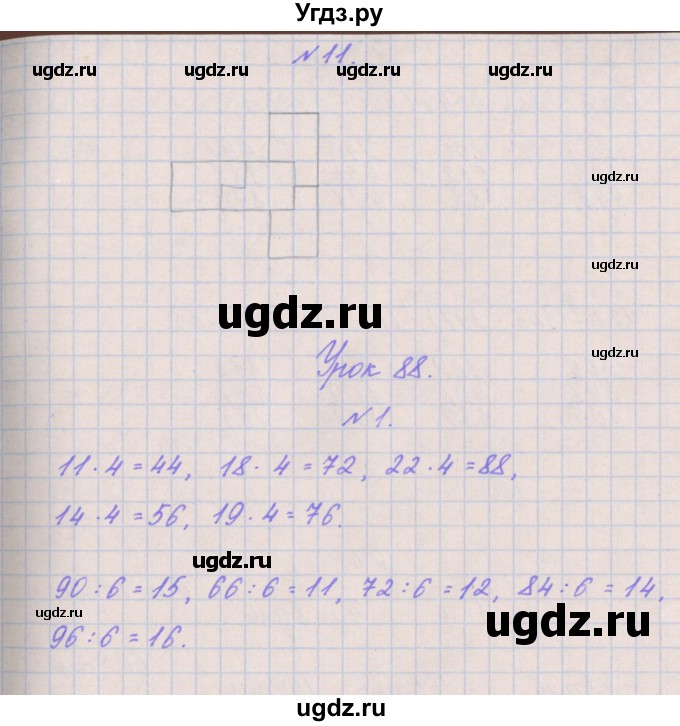 Угдз.ру
№11.
ugdz.ru ugdz.ru ugdz.ru ugdz.ru
ugdz.ru
ugdz.ru
ugdz.ru
Урок 88.
ugdz.ru
№1.
11·4=44, 18·4=72, 22·4=88,
14·4=56, 19·4=76.
ugdz.ru
90:6=15, 66:6=11, 72:6=12, 84:6=14,
ugdz.ru ugdz.ru
96:6=16.
ugdz.ru